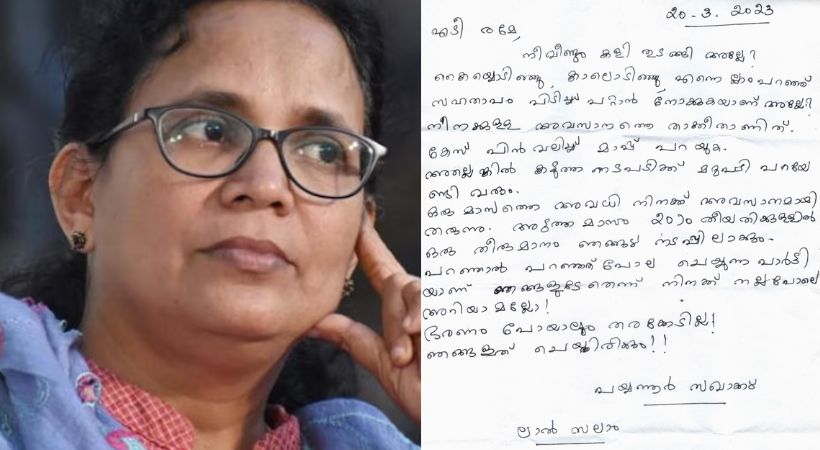 20-3.2023
എടീ രമേ,
നീ വീണ്ടും കളി തുടങ്ങി അല്ലേ?
കൈയൊടിഞ്ഞു, കാലൊടിഞ്ഞു എന്നെല്ലാം പറഞ്ഞ്
സഹതാപം പിടിച്ചു പറ്റാൻ നോക്കുകയാണ് അല്ലേ?
നിനക്കുള്ള അവസാനത്തെ താക്കീതാണിത്.
കേസ് പിൻവലിച്ച് മാപ്പ് പറയുക.
അല്ലെങ്കിൽ കടുത്ത നടപടിക്ക് മറുപടി പറയേ
ണ്ടി വരും.
ഒരു മാസത്തെ അവധി നിനക്ക് അവസാനമായി
തരുന്നു. അടുത്ത മാസം 20ാം തീയതിക്കുള്ളിൽ
ഒരു തീരുമാനം ഞങ്ങൾ നടപ്പിലാക്കും.
പറഞ്ഞാൽ പറഞ്ഞത് പോലെ ചെയ്യുന്ന പാർട്ടി
യാണ് ഞങ്ങളുടേതെന്ന് നിനക്ക് നല്ലപോലെ
അറിയാമല്ലോ!
ഭരണം പോയാലും തരക്കേടില്ല!
ഞങ്ങളത് ചെയ്തിരിക്കും!!
പയ്യന്നൂർ സഖാക്കൾ
ലാൽ സലാം